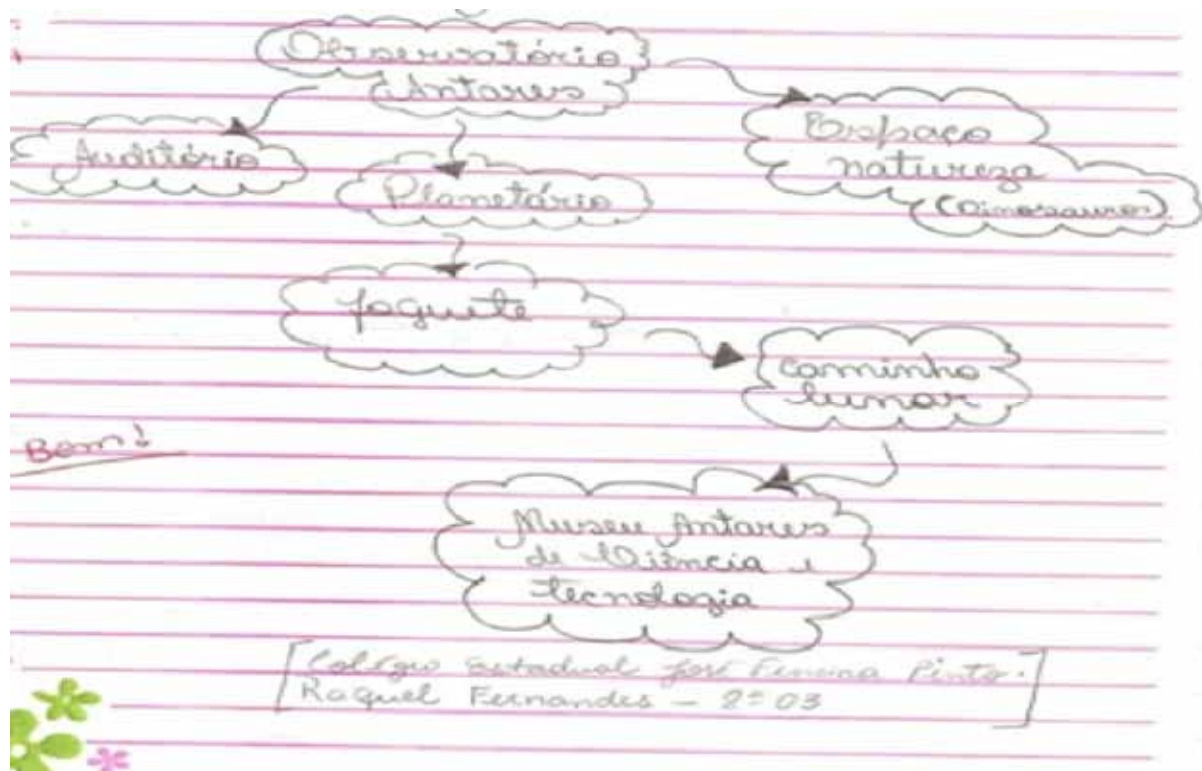 Observatório
Antares
Auditório
Planetário
Espaço
natureza
(Dinossauros)
foguete
caminho
lunar
Bem!
Museu Antares
de Ciência e
tecnologia
Colégio Estadual José Ferreira Pinto.
Raquel Fernandes - 2º 03